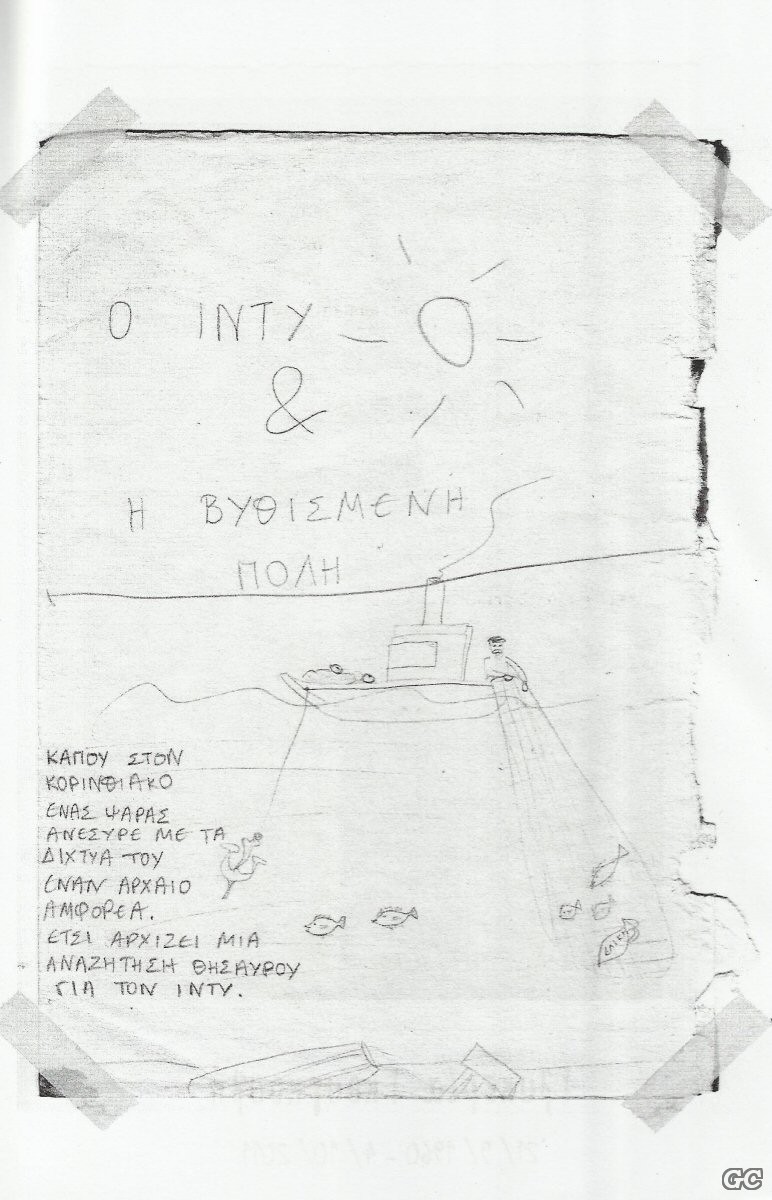 Ο ΙΝΤΥ
&
Η ΒΥΘΙΣΜΕΝΗ
ΠΟΛΗ
ΚΑΠΟΥ ΣΤΟΝ
ΚΟΡΙΝΘΙΑΚΟ
ΕΝΑΣ ΨΑΡΑΣ
ΑΝΕΣΥΡΕ ΜΕ ΤΑ
ΔΙΧΤΥΑ ΤΟΥ
ΕΝΑΝ ΑΡΧΑΙΟ
ΑΜΦΟΡΕΑ.
ΕΤΣΙ ΑΡΧΙΖΕΙ ΜΙΑ
ΑΝΑΖΗΤΗΣΗ ΘΗΣΑΥΡΟΥ
ΓΙΑ ΤΟΝ ΙΝΤΥ.
GC